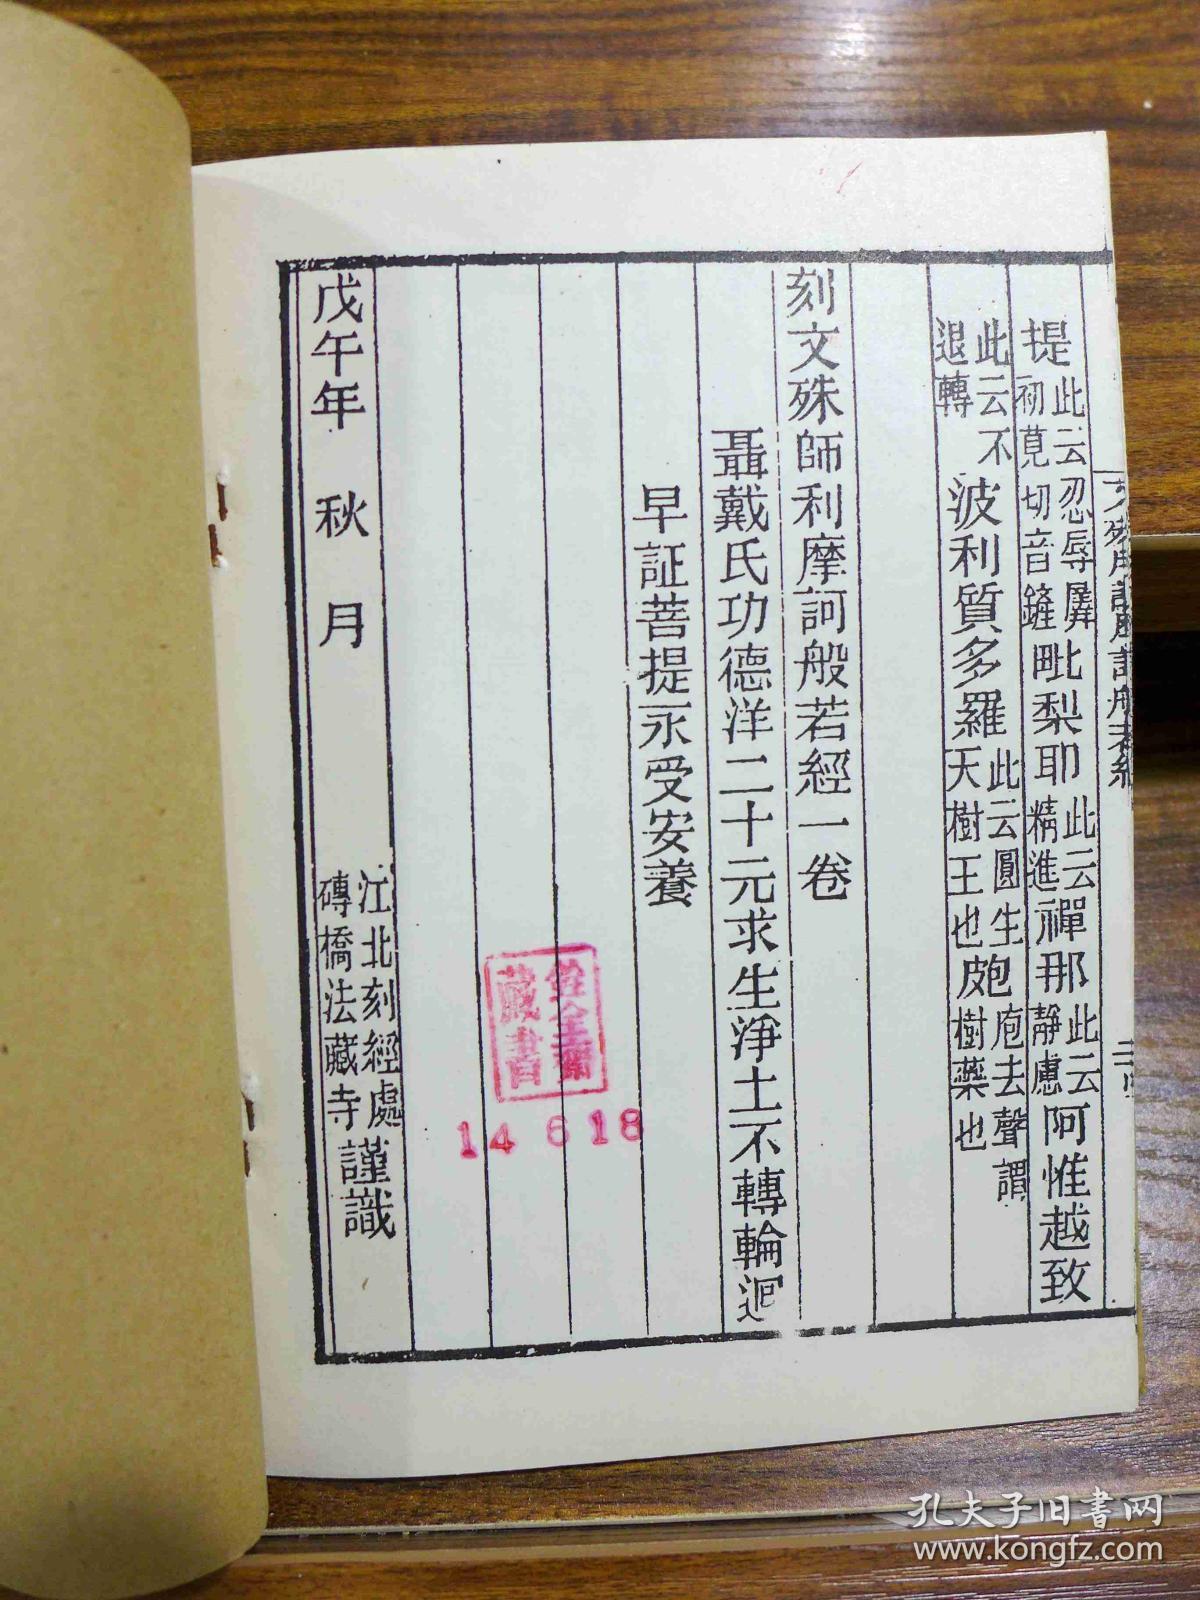 提此云忍辱羼初莧切音鏟毗梨耶此云精進禪那此云靜慮阿惟越致
此云不退轉波利質多羅此云圓生天樹王也皰庖去聲謂皮樹藥也
刻文殊師利摩訶般若經一卷
聶戴氏功德洋二十元求生淨土不轉輪迴
早証菩提永受安養
戊午年 秋 月 江北刻經處磚橋法藏寺謹識
藏書
14 6 18
孔夫子旧书网
www.kongfz.com